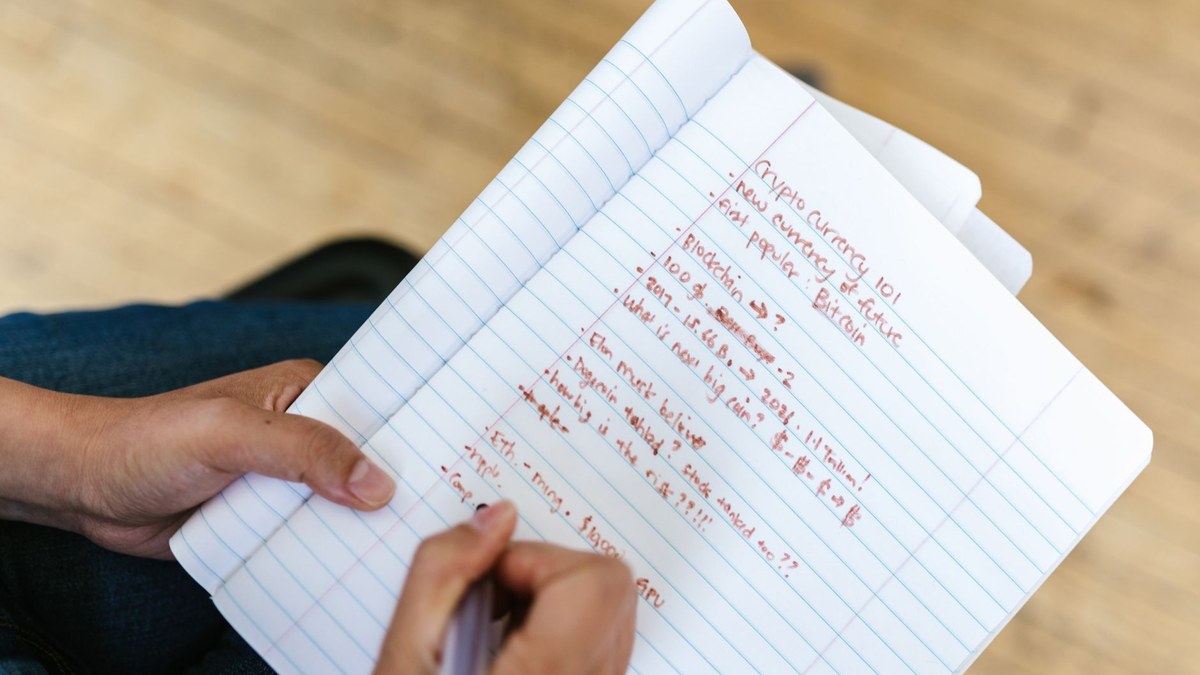 Crypto Currency 101
- new currency of future
- first popular : Bitcoin
- Blockchain → ?
- 100 of -2
- 2017 - 15.66 B. → 2021. 1.1 Trillion!
- What is next big coin? $ - $ - $ → $
- Elon musk believes
- Dogecoin ? stock tanked too ??
- how big is the risk ??!!!
- Eth. - ming. $10,000 GPU
- ripple.
- Comp.